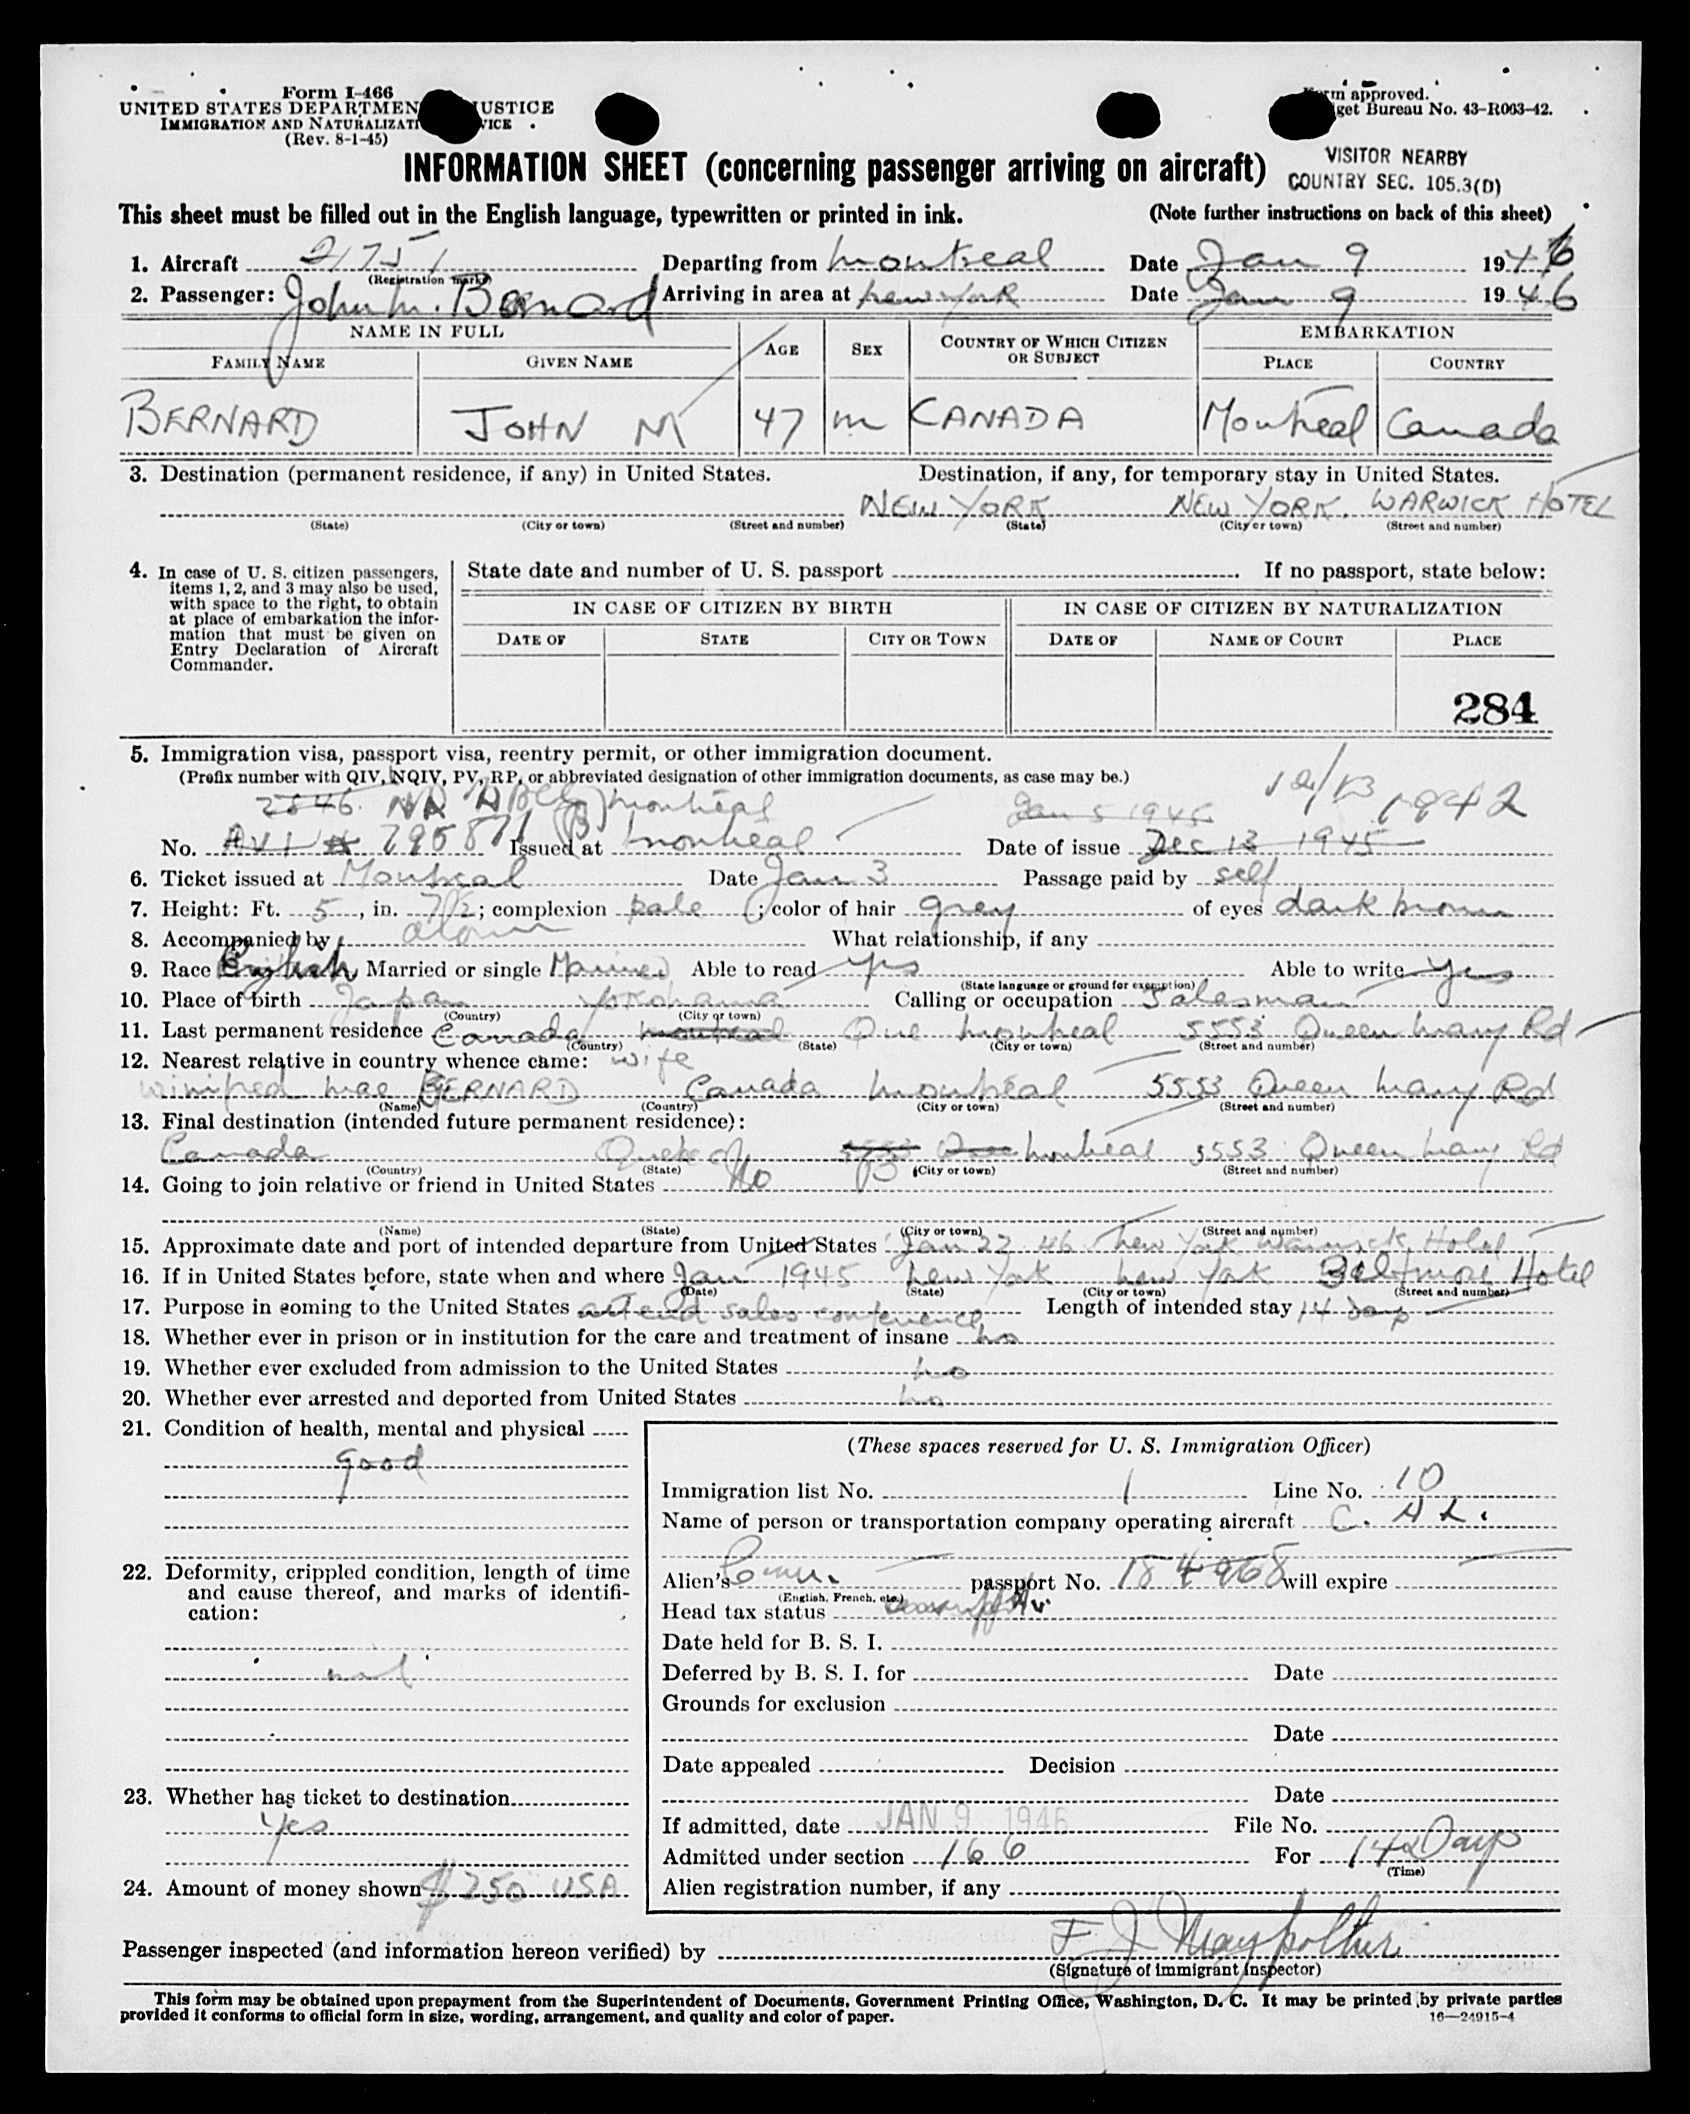 Form I-466
UNITED STATES DEPARTMEN USTICE
IMMIGRATION AND NATURALIZATI VICE
(Rev. 8-1-45)
rm approved.
get Bureau No. 43-R063-42.
INFORMATION SHEET (concerning passenger arriving on aircraft)
VISITOR NEARBY
COUNTRY SEC. 105.3(D)
This sheet must be filled out in the English language, typewritten or printed in ink. (Note further instructions on back of this sheet)
1. Aircraft 21751 Departing from Montreal Date Jan 9 1946
(Registration marks)
2. Passenger: John M. Bernard Arriving in area at New York Date Jan 9 1946
NAME IN FULL AGE SEX COUNTRY OF WHICH CITIZEN OR SUBJECT EMBARKATION
FAMILY NAME GIVEN NAME PLACE COUNTRY
BERNARD JOHN M 47 m CANADA Montreal Canada
3. Destination (permanent residence, if any) in United States. Destination, if any, for temporary stay in United States.
NEW YORK NEW YORK. WARWICK HOTEL
(State) (City or town) (Street and number) (State) (City or town) (Street and number)
4. In case of U. S. citizen passengers,
items 1, 2, and 3 may also be used,
with space to the right, to obtain
at place of embarkation the infor-
mation that must be given on
Entry Declaration of Aircraft
Commander.
State date and number of U. S. passport . If no passport, state below:
IN CASE OF CITIZEN BY BIRTH IN CASE OF CITIZEN BY NATURALIZATION
DATE OF STATE CITY OR TOWN DATE OF NAME OF COURT PLACE
284
5. Immigration visa, passport visa, reentry permit, or other immigration document.
(Prefix number with QIV, NQIV, PV, RP, or abbreviated designation of other immigration documents, as case may be.)
2846 Montreal Jan 5 1946 12/13 1942
No. 79587 Issued at Montreal Date of issue Dec 13 1945
6. Ticket issued at Montreal Date Jan 3 Passage paid by self
7. Height: Ft. 5, in. 7 1/2; complexion pale; color of hair grey of eyes dark brown
8. Accompanied by alone What relationship, if any
9. Race English Married or single Married Able to read yes Able to write yes
(State language or ground for exemption)
10. Place of birth Japan Yokohama Calling or occupation Salesman
(Country) (City or town)
11. Last permanent residence Canada Montreal Que Montreal 5553 Queen Mary Rd
(Country) (State) (City or town) (Street and number)
12. Nearest relative in country whence came: wife
Winifred Mae BERNARD Canada Montreal 5553 Queen Mary Rd
(Name) (Country) (City or town) (Street and number)
13. Final destination (intended future permanent residence):
Canada Quebec 5553 Montreal 5553 Queen Mary Rd
(Country) (State) (City or town) (Street and number)
14. Going to join relative or friend in United States No
(Name) (State) (City or town) (Street and number)
15. Approximate date and port of intended departure from United States Jan 22 46 New York Warwick Hotel
16. If in United States before, state when and where Jan 1945 New York New York Biltmore Hotel
(Date) (State) (City or town) (Street and number)
17. Purpose in coming to the United States attend sales conference Length of intended stay 14 days
18. Whether ever in prison or in institution for the care and treatment of insane no
19. Whether ever excluded from admission to the United States no
20. Whether ever arrested and deported from United States no
21. Condition of health, mental and physical
good
22. Deformity, crippled condition, length of time
and cause thereof, and marks of identifi-
cation:
nil
23. Whether has ticket to destination
Yes
24. Amount of money shown $250 USA
(These spaces reserved for U. S. Immigration Officer)
Immigration list No. 1 Line No. 10
Name of person or transportation company operating aircraft C. A L.
Alien's passport No. 184968 will expire
(English, French, etc.)
Head tax status
Date held for B. S. I.
Deferred by B. S. I. for Date
Grounds for exclusion
Date
Date appealed Decision
Date
If admitted, date JAN 9 1946 File No.
Admitted under section 166 For 14 Days
(Time)
Alien registration number, if any
Passenger inspected (and information hereon verified) by F J
(Signature of Immigrant Inspector)
This form may be obtained upon prepayment from the Superintendent of Documents, Government Printing Office, Washington, D. C. It may be printed by private parties
provided it conforms to official form in size, wording, arrangement, and quality and color of paper.
16—24915-4